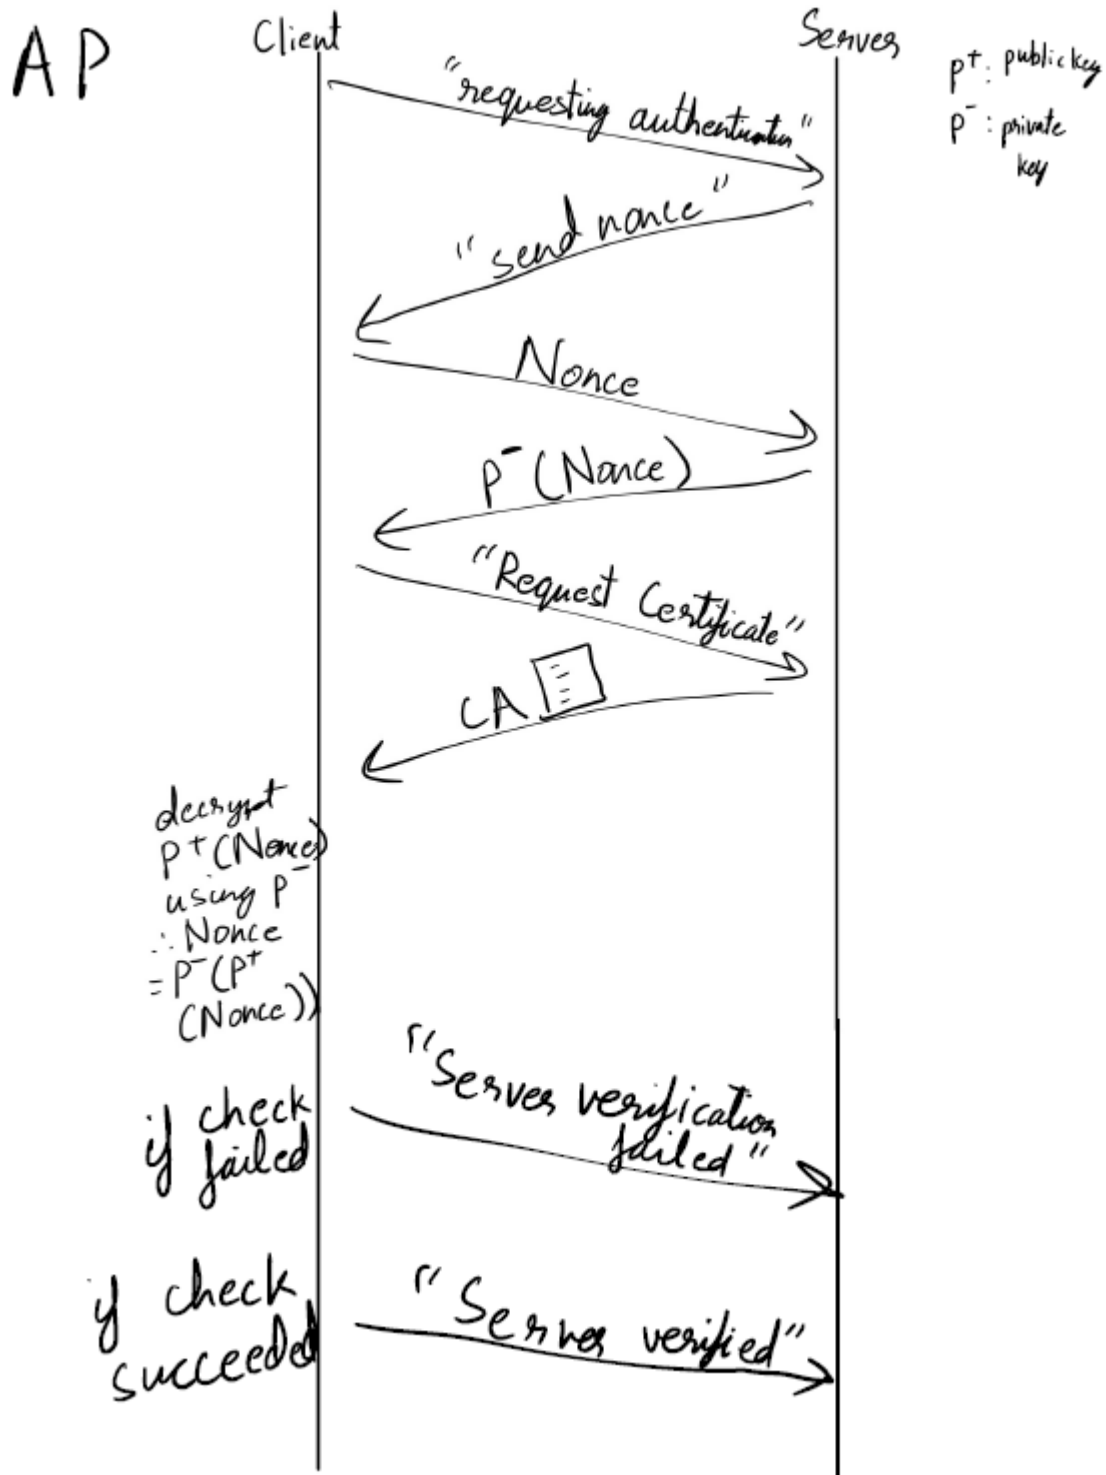 AP
Client
Server
P+: public key
P- : private
key
"requesting authentication"
"send nonce"
Nonce
P-(Nonce)
"Request Certificate"
CA
decrypt
P+(Nonce)
using P-
∴ Nonce
= P-(P+
(Nonce))
if check
failed
"Server verification
failed"
if check
succeeded
"Server verified"